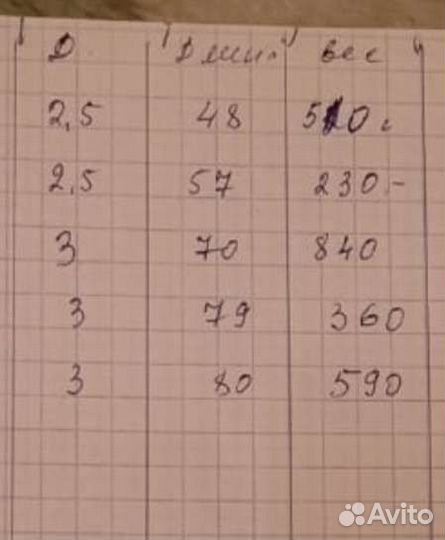 D Длин. вес
2,5 48 510 г
2,5 57 230 –
3 70 840
3 79 360
3 80 590
Avito